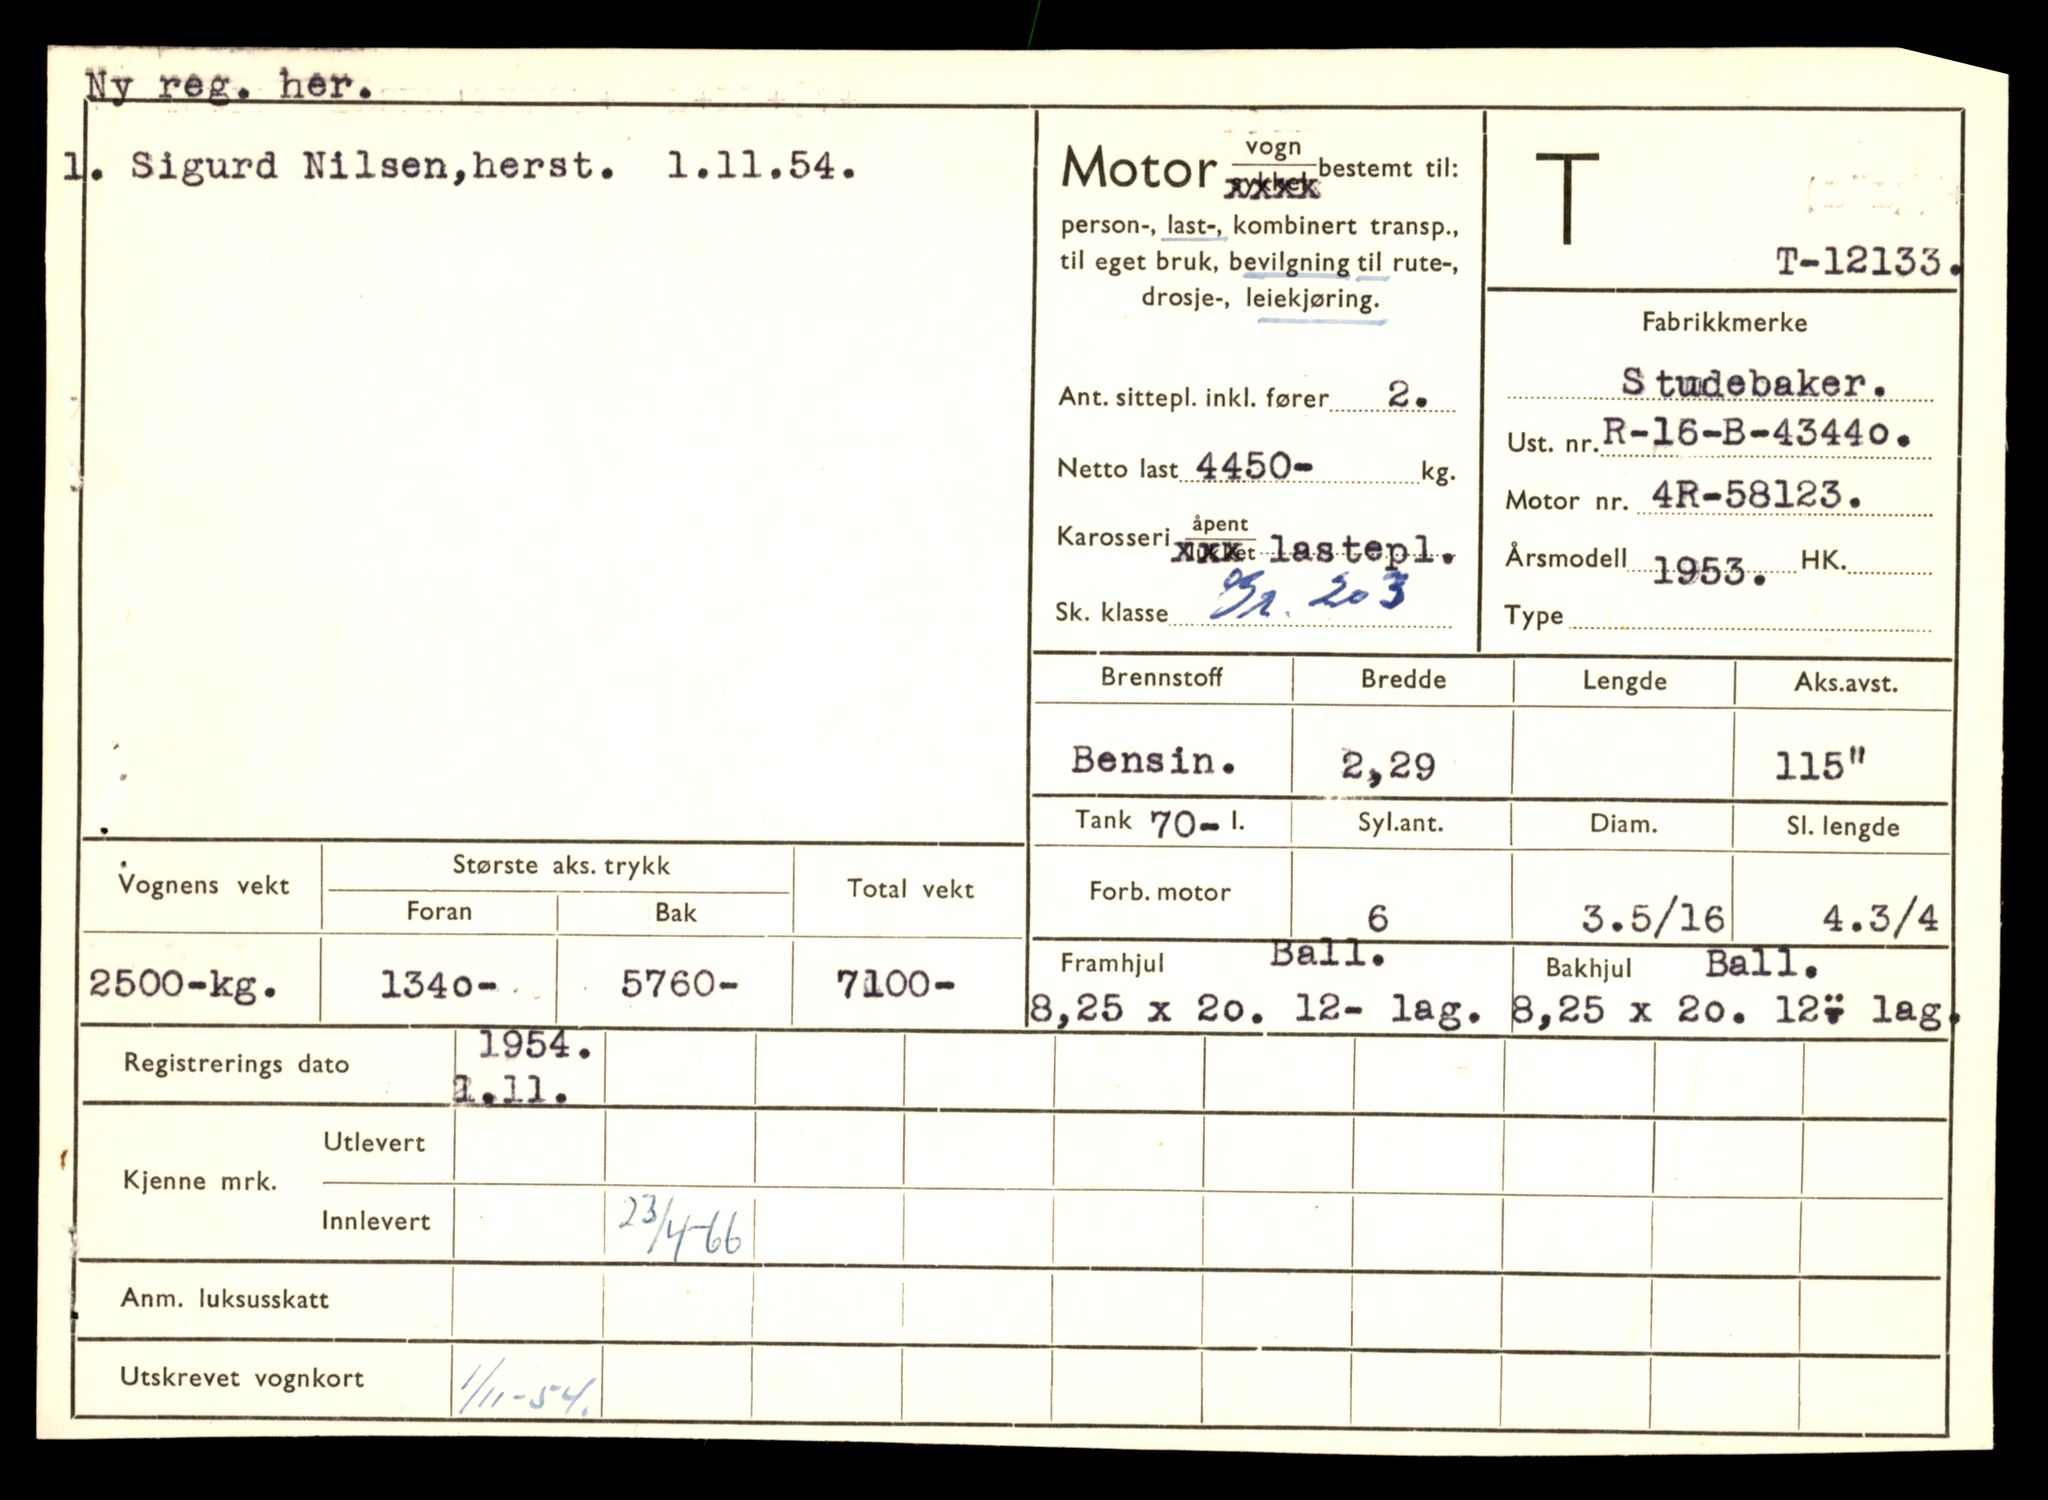 Ny reg. her.
1. Sigurd Nilsen,herst. 1.11.54.
Motor vogn bestemt til:
person-, last-, kombinert transp.,
til eget bruk, bevilgning til rute-,
drosje-, leiekjøring.
Ant. sittepl. inkl. fører 2.
Netto last 4450- kg.
Karosseri åpent lukket lastepl.
Sk. klasse Gr. 203
T
T-12133.
Fabrikkmerke
Studebaker.
Ust. nr. R-16-B-43440.
Motor nr. 4R-58123.
Årsmodell 1953. HK.
Type
Brennstoff Bredde Lengde Aks.avst.
Bensin. 2,29 115"
Tank 70- l. Syl.ant. Diam. Sl. lengde
Forb. motor 6 3.5/16 4.3/4
Framhjul Ball. Bakhjul Ball.
8,25 x 20. 12- lag. 8,25 x 20. 12- lag.
Vognens vekt Største aks. trykk Total vekt
Foran Bak
2500-kg. 1340- 5760- 7100-
Registrerings dato 1954.
1.11.
Kjenne mrk. Utlevert
Innlevert 23/4-66
Anm. luksusskatt
Utskrevet vognkort 1/11-54.